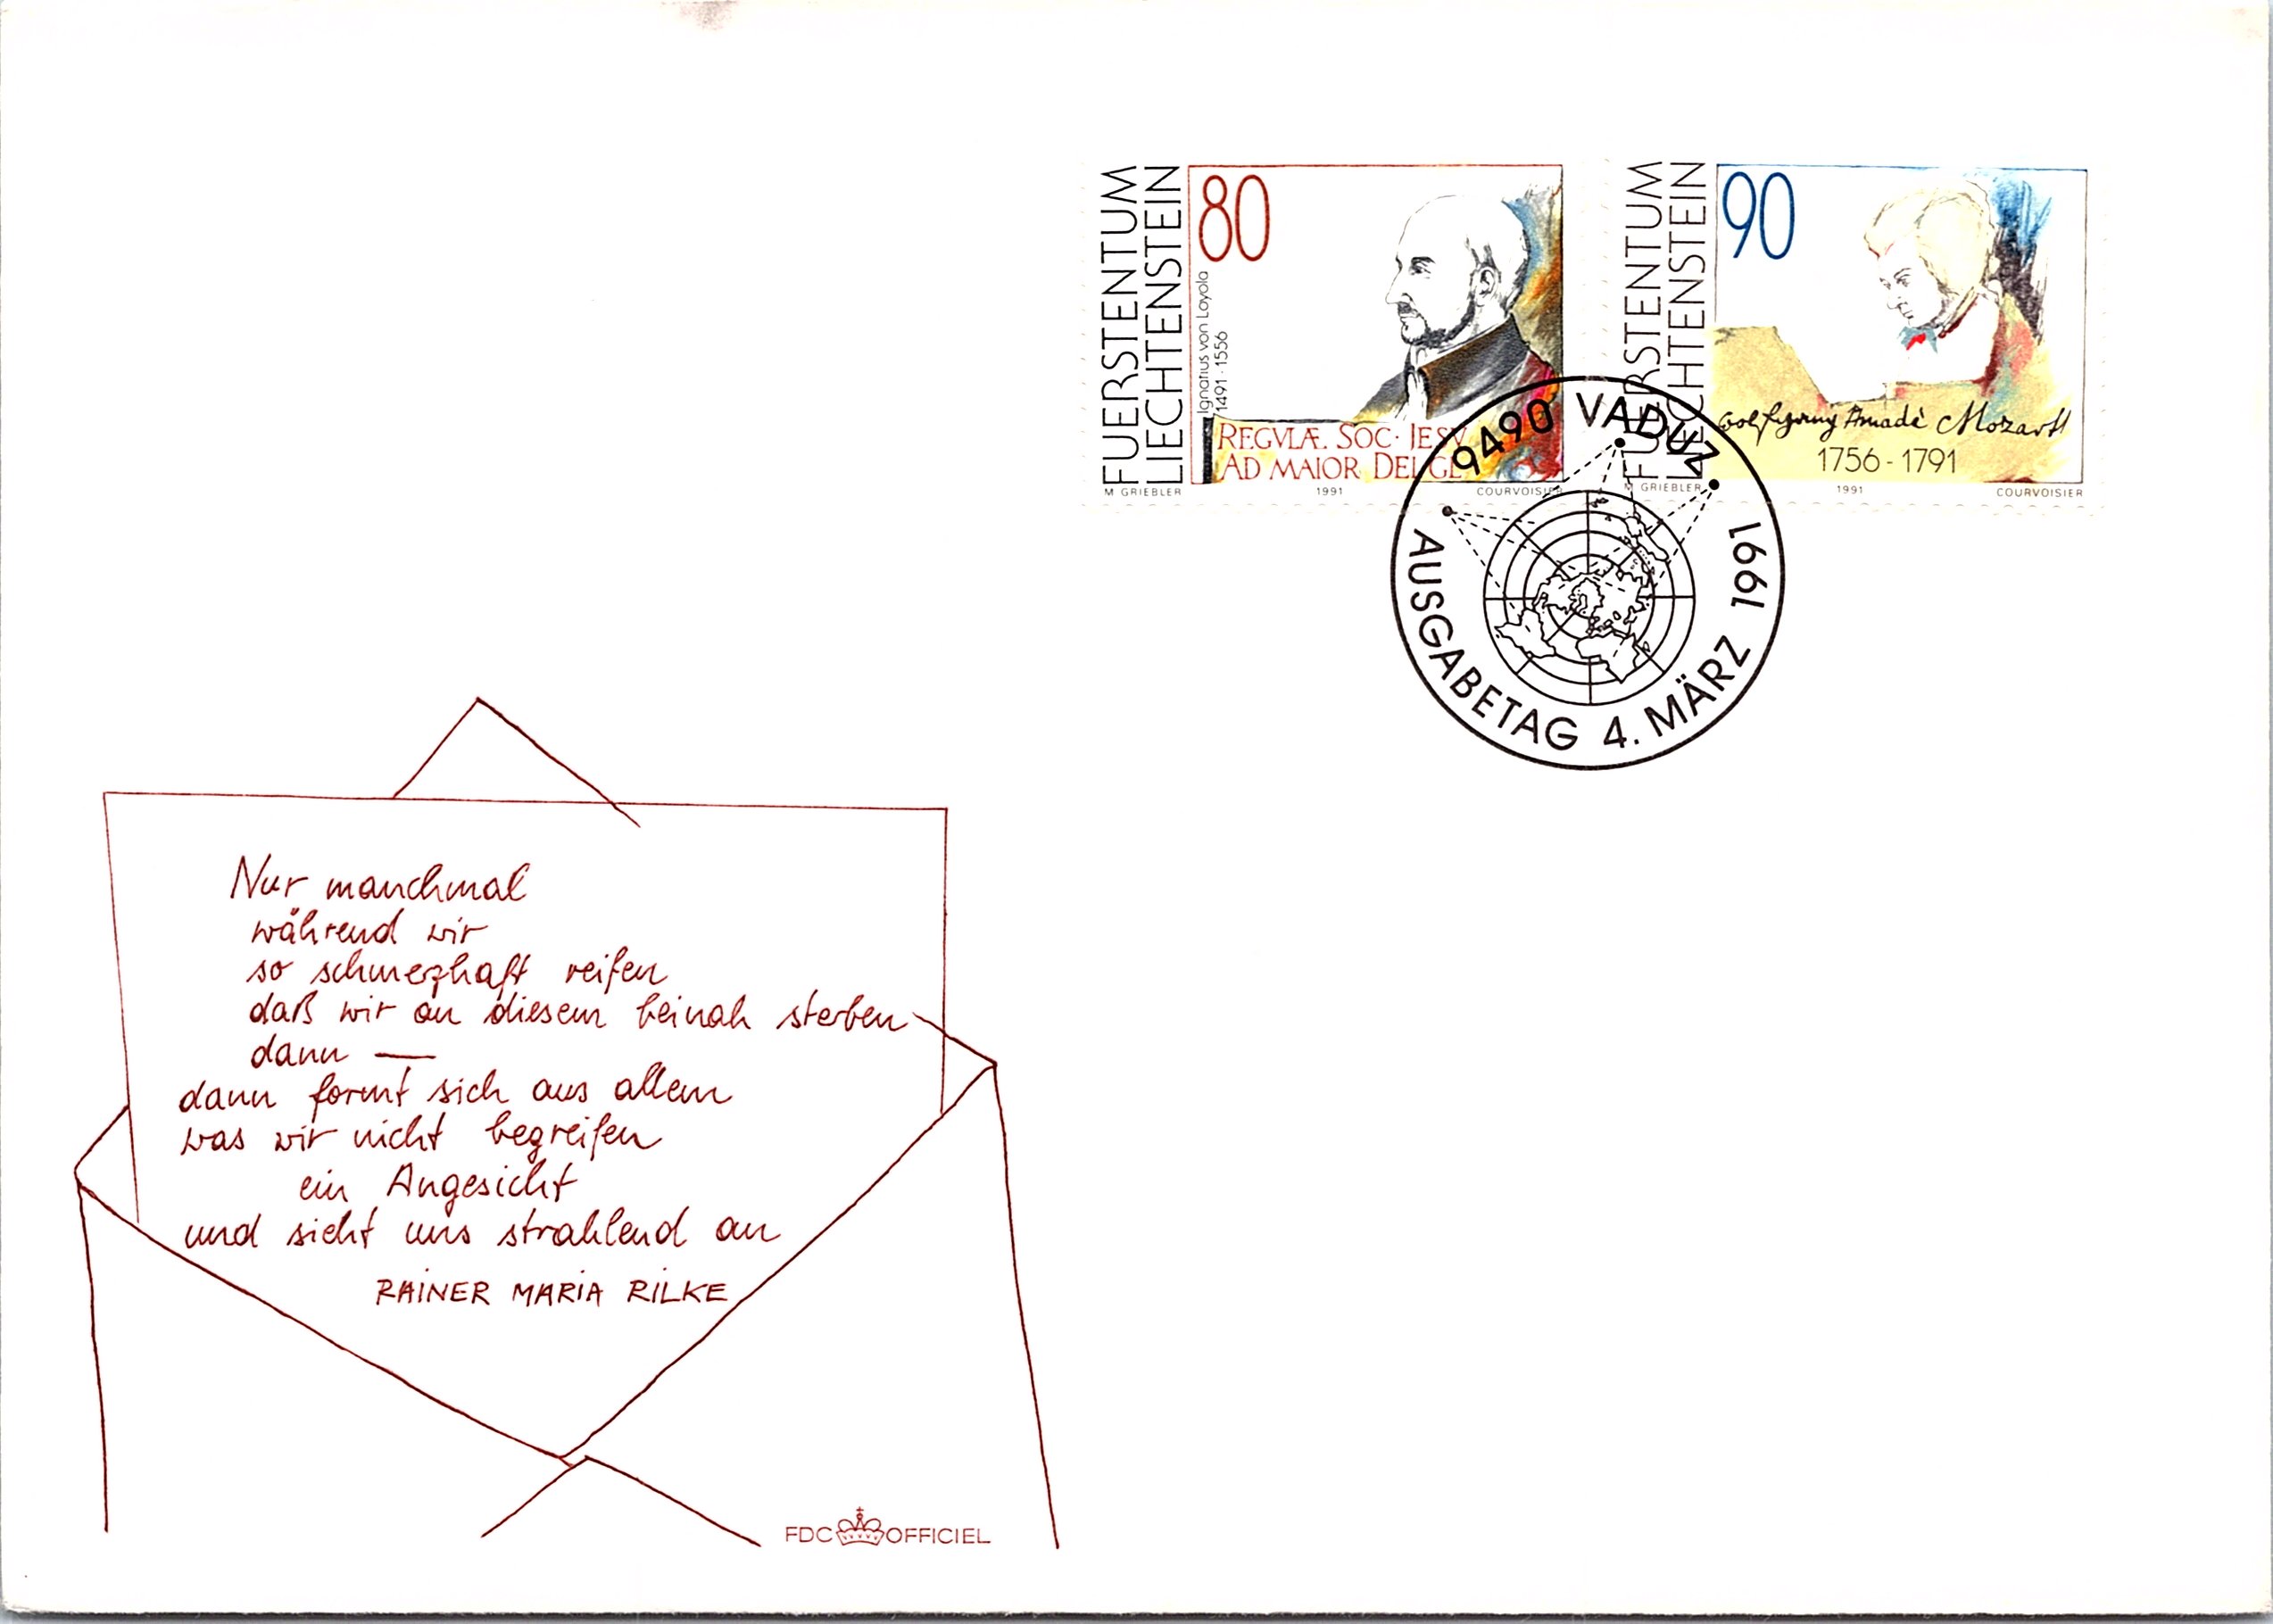 FUERSTENTUM
LIECHTENSTEIN
80
Ignatius von Loyola
1491 · 1556
REGVLÆ. SOC · JESV
AD MAIOR DEI GL
M GRIEBLER 1991 COURVOISIER
FUERSTENTUM
LIECHTENSTEIN
90
Wolfgang Amadè Mozart
1756 - 1791
M GRIEBLER 1991 COURVOISIER
9490 VADUZ
AUSGABETAG 4. MÄRZ 1991
Nur manchmal
während wir
so schmerzhaft reifen
daß wir an diesem beinah sterben
dann —
dann formt sich aus allem
was wir nicht begreifen
ein Angesicht
und sieht uns strahlend an
RAINER MARIA RILKE
FDC OFFICIEL